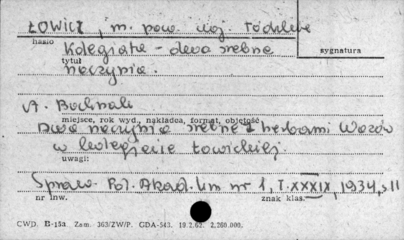 ŁOWICZ, m. pow. woj. łódzkie
hasło
Kolegiata - dwa srebrne
sygnatura
tytuł
naczynia.
A. Bochnak
miejsce, rok wyd., nakładca, format, objętość
Dwa naczynia srebrne z herbami Wazów
w kolegiacie łowickiej.
uwagi:
Spraw. Pol. Akad. Um nr 1, T. XXXIX, 1934, s 11
nr inw.
znak klas.
CWD. D-15a Zam. 363/ZW/P. GDA-543. 19.2.62. 2.200.000.